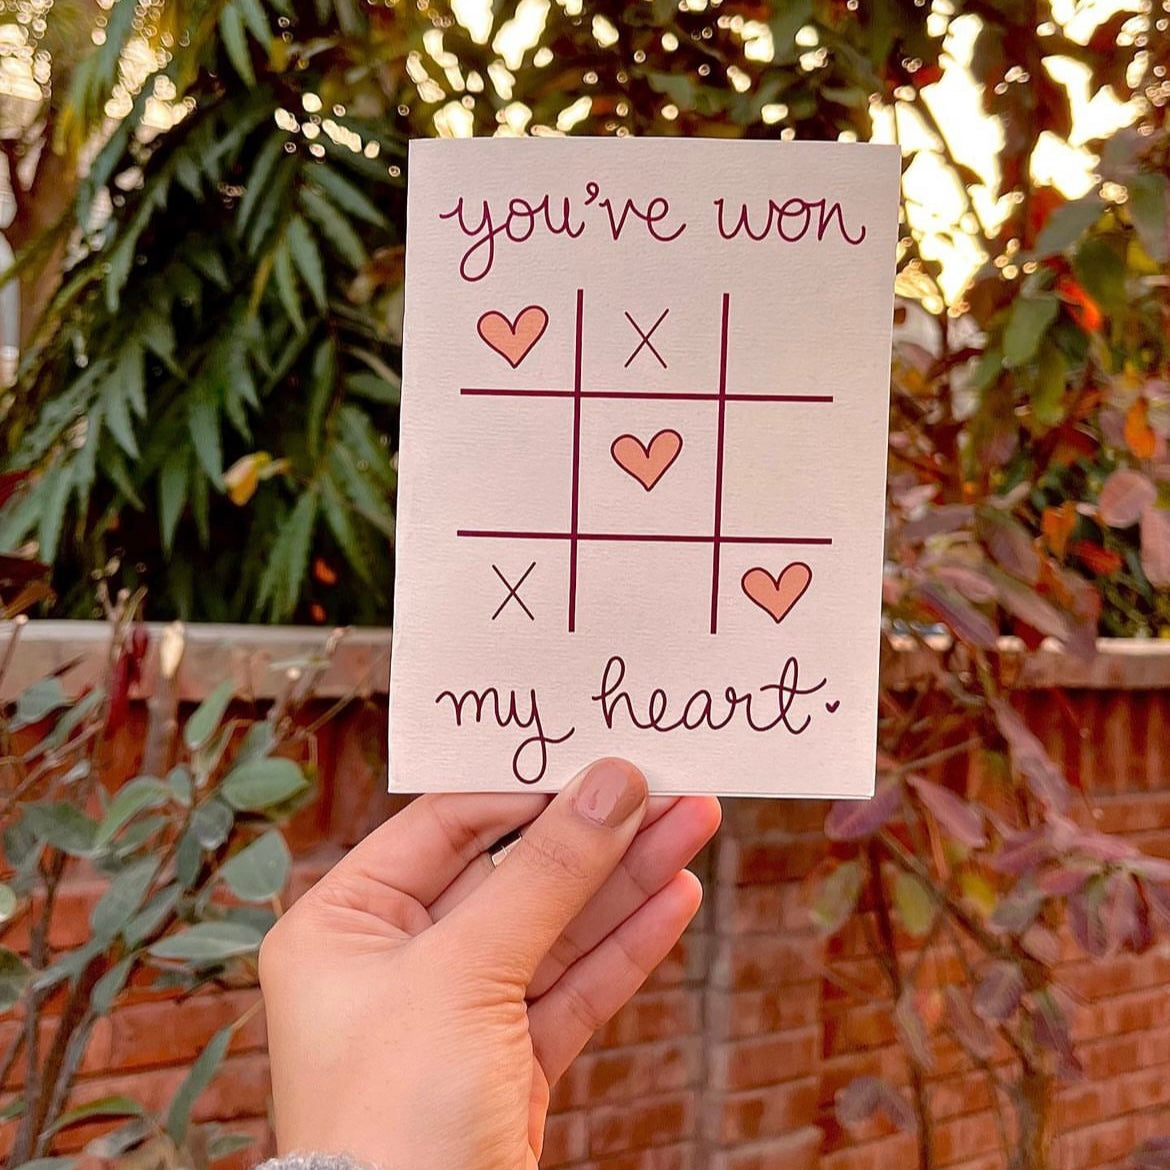 you've won
X
X
my heart.